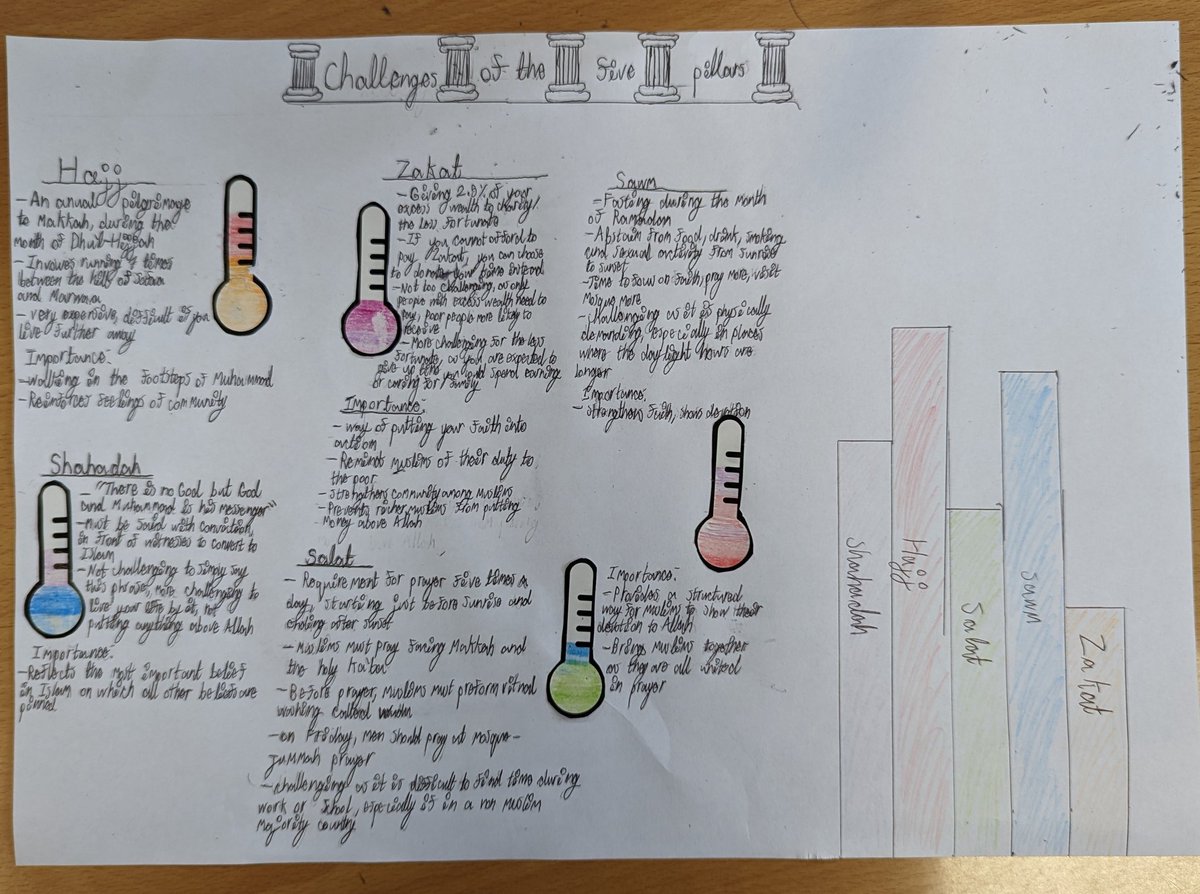 Challenges of the five pillars
Hajj
- An annual pilgrimage
to Makkah, during the
month of Dhul-Hijjah
- Involves running 7 times
between the hills of Safaa
and Marwaa
- very expensive, difficult if you
live further away
Importance:
- Walking in the footsteps of Muhammad
- Reinforces feelings of community
Shahadah
- "There is no God but God
and Muhammad is his messenger"
- Must be said with conviction,
in front of witnesses to convert to
Islam
- Not challenging to simply say
this phrase, more challenging to
live your life by it, not
putting anything above Allah
Importance:
- Reflects the most important belief
in Islam on which all other beliefs are
Zakat
- Giving 2.5% of your
excess wealth to charity/
the less fortunate
- If you cannot afford to
pay Zakat, you can choose
to donate your time instead
- Not too challenging, as only
people with excess wealth need to
pay, poor people more likely to
receive
- More challenging for the less
fortunate, as you are expected to
give up time you could spend earning
or caring for family
Importance:
- way of putting your faith into
action
- Reminds muslims of their duty to
the poor
- strengthens community among muslims
- Prevents richer muslims from putting
money above Allah
Salat
- Requirement for prayer five times a
day, starting just before sunrise and
ending after sunset
- Muslims must pray facing Makkah and
the holy Ka'ba
- Before prayer, muslims must preform ritual
washing called
- on Friday, men should pray at mosque -
Jummah prayer
- challenging as it is difficult to find time during
work or school, especially if in a non muslim
majority country
Sawm
- Fasting during the month
of Ramadan
- Abstain from food, drink, smoking
and sexual activity from sunrise
to sunset
- Time to focus on faith, pray more, visit
mosque more
- Challenging as it is physically
demanding, especially in places
where the daylight hours are
longer
Importance:
- strengthens faith, shows devotion
Importance:
- Provides a structured
way for muslims to show their
devotion to Allah
- Brings muslims together
as they are all united
in prayer
Shahadah
Hajj
Salat
Sawm
Zakat